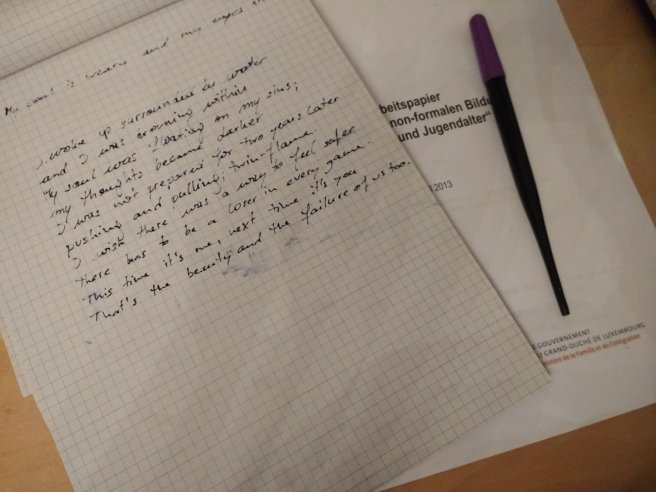 My soul is weary and my eyes are
I woke up surrounded by water
and I was drowning within
My soul was floating on my sins;
my thoughts became darker
I was not prepared for two years later
pushing and pulling; twin-flame.
I wish there was a way to feel safer
there has to be a loser in every game.
This time it's me, next time it's you
That's the beauty and the failure of us too.
beitspapier
non-formalen Bildu
und Jugendalter"
2013
E GOUVERNEMENT
U GRAND-DUCHÉ DE LUXEMBOURG
nistère de la Famille et de l'Intégration